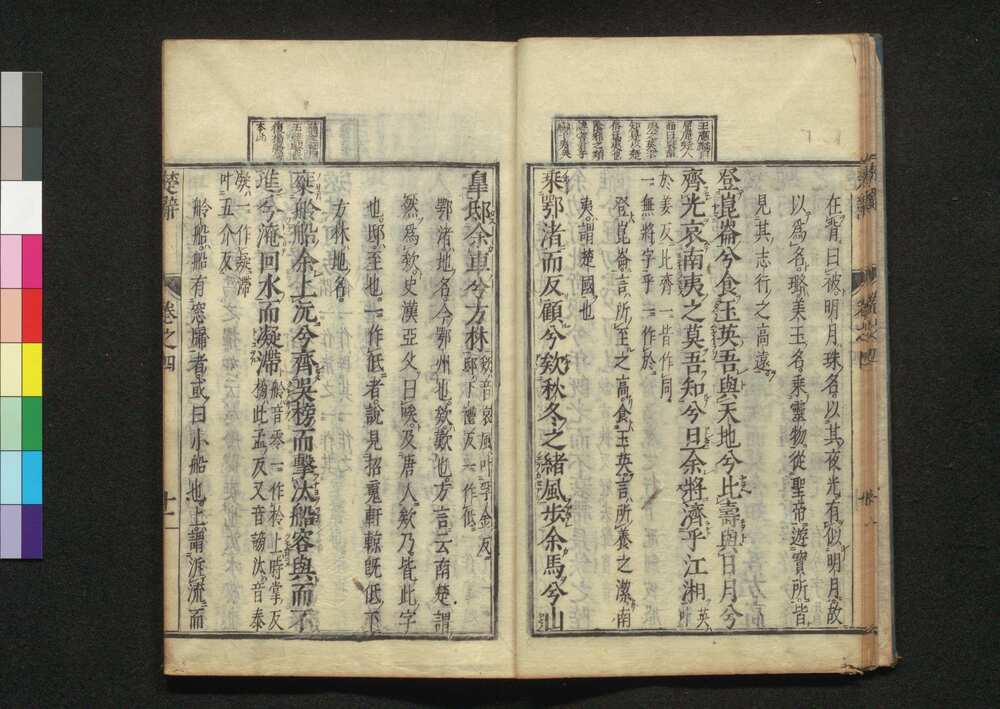 在背曰被明月珠名以其夜光有似明月故
以爲名璐美玉名乘靈物從聖帝遊寶所皆
見其志行之高遠
登崑崙兮食玉英吾與天地兮比壽與日月兮
齊光哀南夷之莫吾知兮旦余將濟乎江湘英叶
於姜反比齊一皆作同
一無將字乎一作於
登崑崙言所至之高食玉英言所養之潔南
夷謂楚國也
乘鄂渚而反顧兮欸秋冬之緒風步余馬兮山
皐邸余車兮方林欸音哀風叶孚金反
邸丁禮反一作低
鄂渚地名今鄂州也欸歎也方言云南楚謂
然爲欸史漢亞父曰唉及唐人欸乃皆此字
也邸至也一作低者說見招䰟軒輬旣低下
方林地名
乘舲船余上沅兮齊吳榜而擊汰船容與而不
進兮淹回水而凝滯舲音零一作柃上時掌反
榜北孟反又音謗汰音泰
凝一作疑滯
叶丑介反
舲船船有窓牖者或曰小船也上謂泝流而
楚辭
卷之四
十一